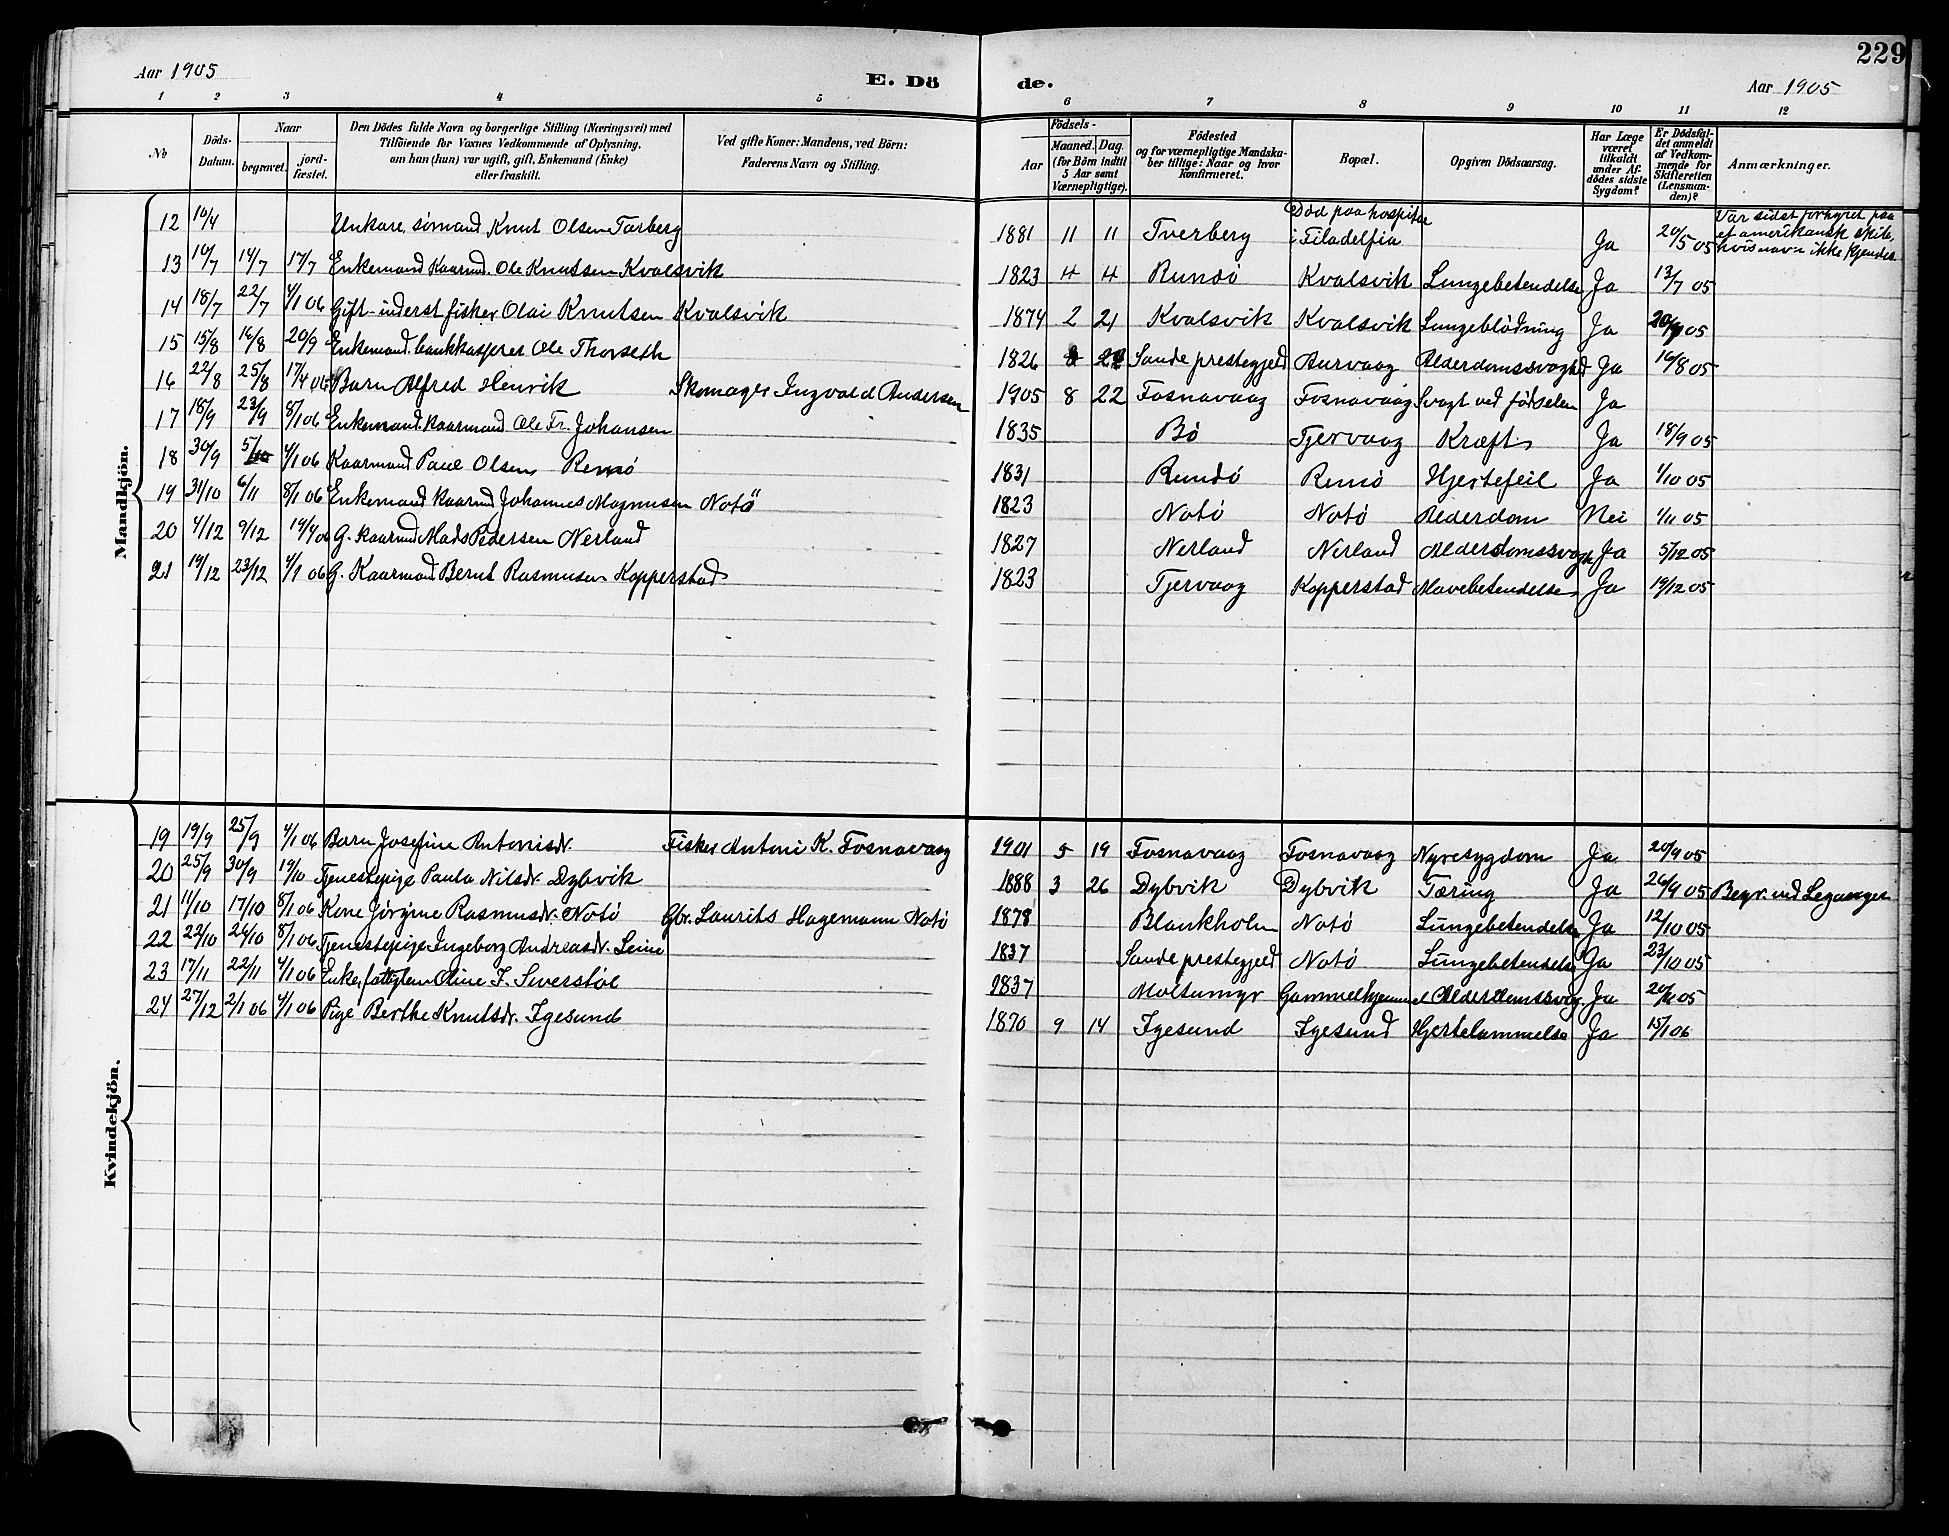 229
Aar 1905 E. Dö de. Aar 1905
1 2 3 4 5 6 7 8 9 10 11 12
No
Döds-Datum.
Naar
begravet. jord-fæstet.
Den Dödes fulde Navn og borgerlige Stilling (Næringsvei) med
Tilföiende for Voxnes Vedkommende af Oplysning,
om han (hun) var ugift, gift, Enkemand (Enke)
eller fraskilt.
Ved gifte Koner: Mandens, ved Börn:
Faderens Navn og Stilling.
Födsels-
Aar Maaned. Dag.
(for Börn indtil
5 Aar samt
Værnepligtige).
Födested
og for værnepligtige Mandska-
ber tillige: Naar og hvor
konfirmeret.
Bopæl.
Opgiven Dödsaarsag.
Har Læge
været
tilkaldt
under Af-
dödes sidste
Sygdom?
Er Dödsfal-
det anmeldt
af Vedkom-
mende for
Skifteretten
(Lensman-
den)?
Anmærkninger.
Mandkjön.
12 10/4 Unkare sömand Knut Olsen Tarberg 1881 11 11 Tverberg Död paa hospital i Filadelfia Ja 20/5 05 Var sidst forhyret paa et amerikansk skib, hvis navn ikke kjendes
13 10/7 14/7 17/7 Enkemand Kaarmd. Ole Knutsen Kvalsvik 1823 4 4 Rundö Kvalsvik Lungebetendelse Ja 13/7 05
14 18/7 22/7 4/1 06 Gift inderst fisker Olai Knutsen Kvalsvik 1874 2 21 Kvalsvik Kvalsvik Lungeblödning Ja 05
15 15/8 16/8 20/9 Enkemand bankkasserer Ole Thorseth 1826 Sande prestegjeld Aurvaag Alderdomssvaghed Ja 16/8 05
16 22/8 25/8 17/4 06 Barn Alfred Henrik Skomager Ingvald Andersen 1905 8 22 Fosnavaag Fosnavaag Svagt ved födselen Ja
17 18/9 23/9 8/1 06 Enkemand kaarmand Ole Fr. Johansen 1835 Bö Tjervaag Kræft Ja 18/9 05
18 30/9 5/10 4/1 06 Kaarmand Paul Olsen Remö 1831 Rundö Remö Hjertefeil Ja 1/10 05
19 31/10 6/11 8/1 06 Enkemand kaarmd Johannes Magnusen Notö 1823 Notö Notö Alderdom Nei 1/11 05
20 4/12 9/12 19/4 06 G. kaarmd Mads Pedersen Nerland 1827 Nerland Nerland Alderdomssvagh Ja 5/12 05
21 19/12 23/12 4/1 06 G. Kaarmand Bernt Rasmusen Kopperstad 1823 Tjervaag Kopperstad Mavebetendelse Ja 19/12 05
Kvindekjön.
19 19/9 25/9 4/1 06 Barn Josefine Antonisdr. Fisker Antoni K. Fosnavaag 1901 5 19 Fosnavaag Fosnavaag Nyresygdom Ja 20/9 05
20 25/9 30/9 19/10 Tjenestepige Paula Nilsdr. Dybvik 1888 3 26 Dybvik Dybvik Tæring Ja 26/9 05 Begr. ved Leganger
21 11/10 17/10 8/1 06 Kone Jörgine Rasmusdr. Notö Gbr. Laurits Hagemann Notö 1878 Blankholm Notö Lungebetendelse Ja 12/10 05
22 22/10 26/10 8/1 06 Tjenestepige Ingeborg Andreasdr. Leine 1837 Sande prestegjeld Notö Lungebetendelse Ja 23/10 05
23 17/11 22/11 4/1 06 Enke, fattiglem Oline J. Siverstöl 1837 Moltumyr Gammelhjemmet Alderdomssvag. Ja 20/11 05
24 27/12 2/1 06 4/1 06 Pige Berthe Knutsdr. Igesund 1870 9 14 Igesund Igesund Hjertelammelse Ja 15/1 06